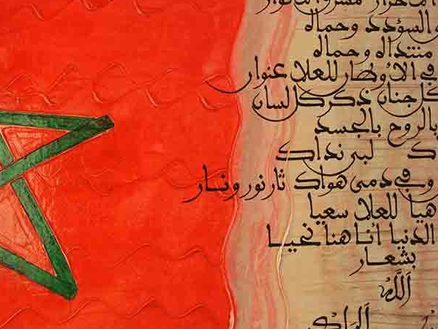 الأحرار مشرق الأنوار
والسؤدد وحماه
منتداه وحماه
في الأوطان للعلا عنوان
كل جنان ذكر كل لسان
بالروح بالجسد
لبى نداك
وفي دمي هواك ثار نور ونار
هيا للعلا سعيا
الدنيا أنا هنا نحيا
بشعار
الله